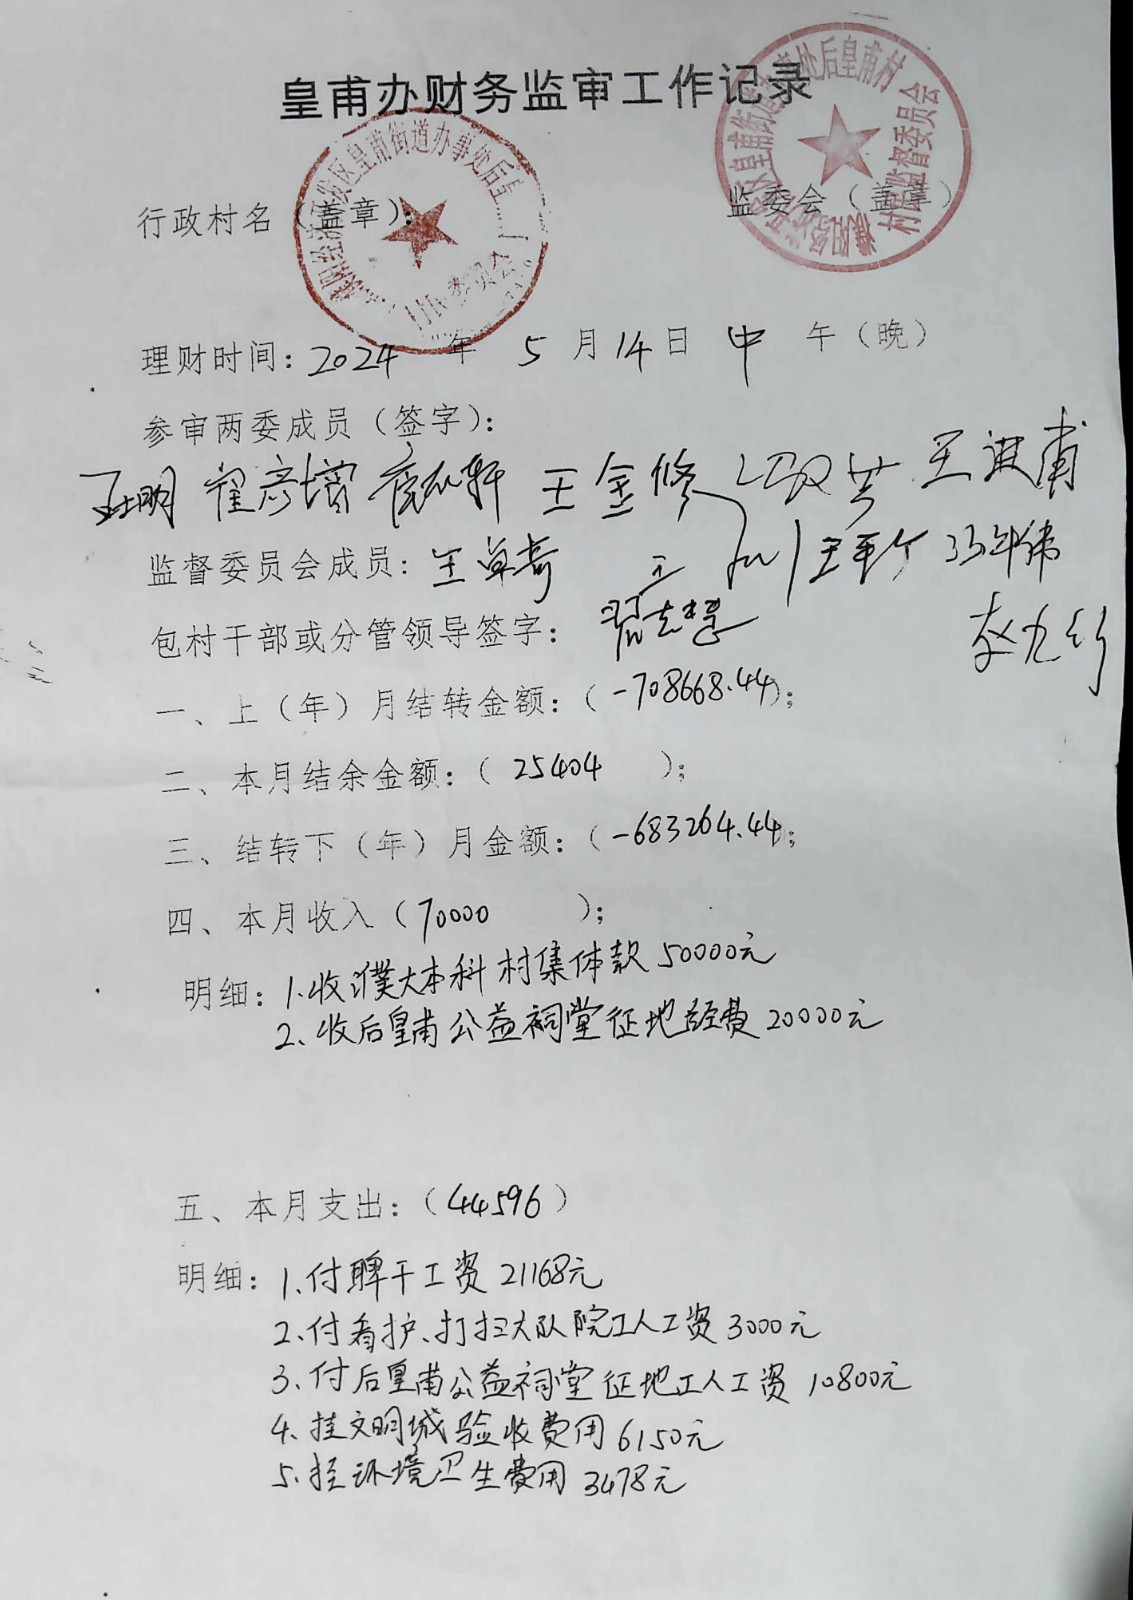 皇甫办财务监审工作记录
皇甫街道办事处后皇
委员会
皇甫街道 处后皇甫村
村务监督委员会
行政村名（盖章）：
监委会（盖章）
理财时间：2024年5月14日中午（晚）
参审两委成员（签字）：
王金修
监督委员会成员：王卓奇
包村干部或分管领导签字：
一、上（年）月结转金额：（-708668.44）；
二、本月结余金额：（25404）；
三、结转下（年）月金额：（-683264.44；
四、本月收入（70000）；
明细：1.收濮大本科村集体款50000元
2、收后皇甫公益祠堂征地经费20000元
五、本月支出：（44596）
明细：1.付脾干工资21168元
2、付看护、打扫大队院工人工资3000元
3、付后皇甫公益祠堂征地工人工资10800元
4、挂文明城验收费用6150元
5、挂环境卫生费用3478元